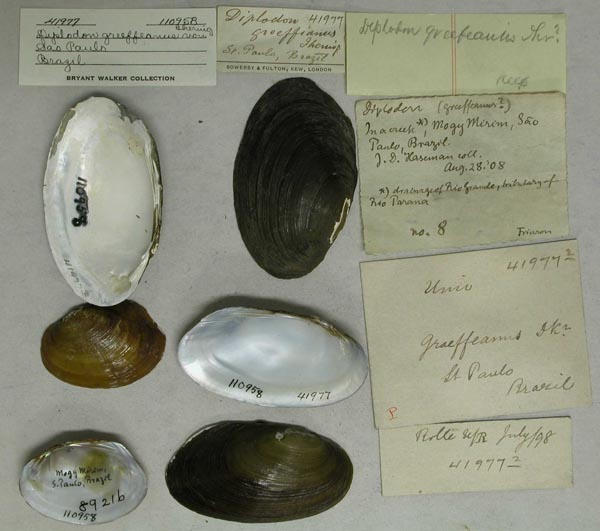 41977 110958
Diplodon greeffeanus
São Paulo
Brazil
BRYANT WALKER COLLECTION
Diplodon 41977
greeffianus
Ihering
St. Paulo, Brazil
SOWERBY & FULTON, KEW, LONDON
Diplodon greefeanus Ihr?
Diplodon (greeffeanus?)
In a creek *), Mogy Mirim, São
Paulo, Brazil.
J. D. Haseman coll.
Aug. 28. '08
*) drainage of Rio Grande, tributary of
Rio Parana
no. 8
Frierson
41977²
Unio
Graeffeanus
St Paulo
Brazil
July/98
41977²
110958
41977
110958
41977
Mogy Mirim,
S. Paulo, Brazil
8921b
110958